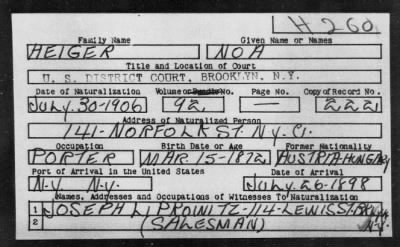 L H 260
Family Name Given Name or Names
HEIGER NOA
Title and Location of Court
U. S. DISTRICT COURT, BROOKLYN, N.Y.
Date of Naturalization Volume or Bundle No. Page No. Copy of Record No.
July-30-1906 92 — 222
Address of Naturalized Person
141-NORFOLK ST. N.Y. C.
Occupation Birth Date or Age Former Nationality
PORTER MAR 15-1872 AUSTRIA-HUNGARY
Port of Arrival in the United States Date of Arrival
N.Y. N.Y. July-26-1898
Names, Addresses and Occupations of Witnesses To Naturalization
1 JOSEPH L. PROINITZ-114-LEWIS ST. N.Y.
2 (SALESMAN)